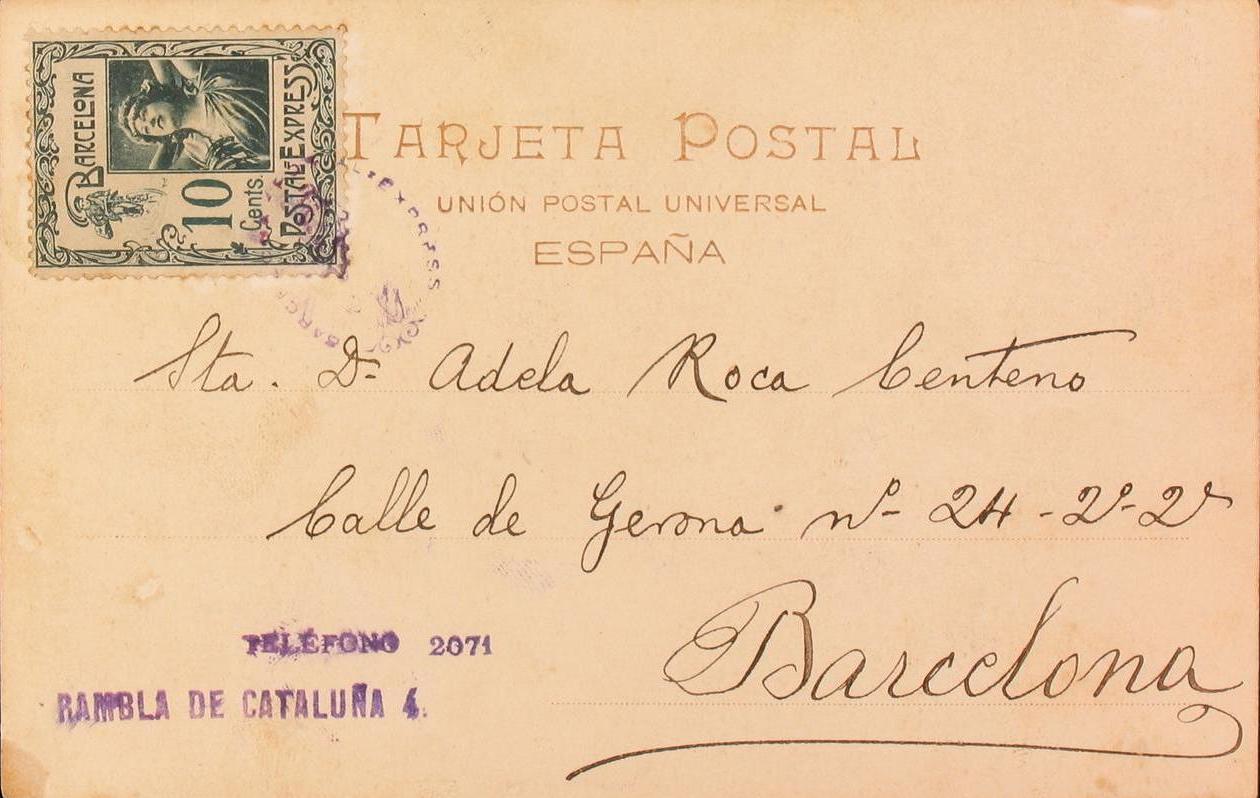 BARCELONA
10
Cents.
POSTAL EXPRESS
TARJETA POSTAL
UNIÓN POSTAL UNIVERSAL
ESPAÑA
Sta. Dª Adela Roca Centeno
Calle de Gerona nº 24 - 2º - 2ª
Barcelona
TELÉFONO 2071
RAMBLA DE CATALUÑA 4.